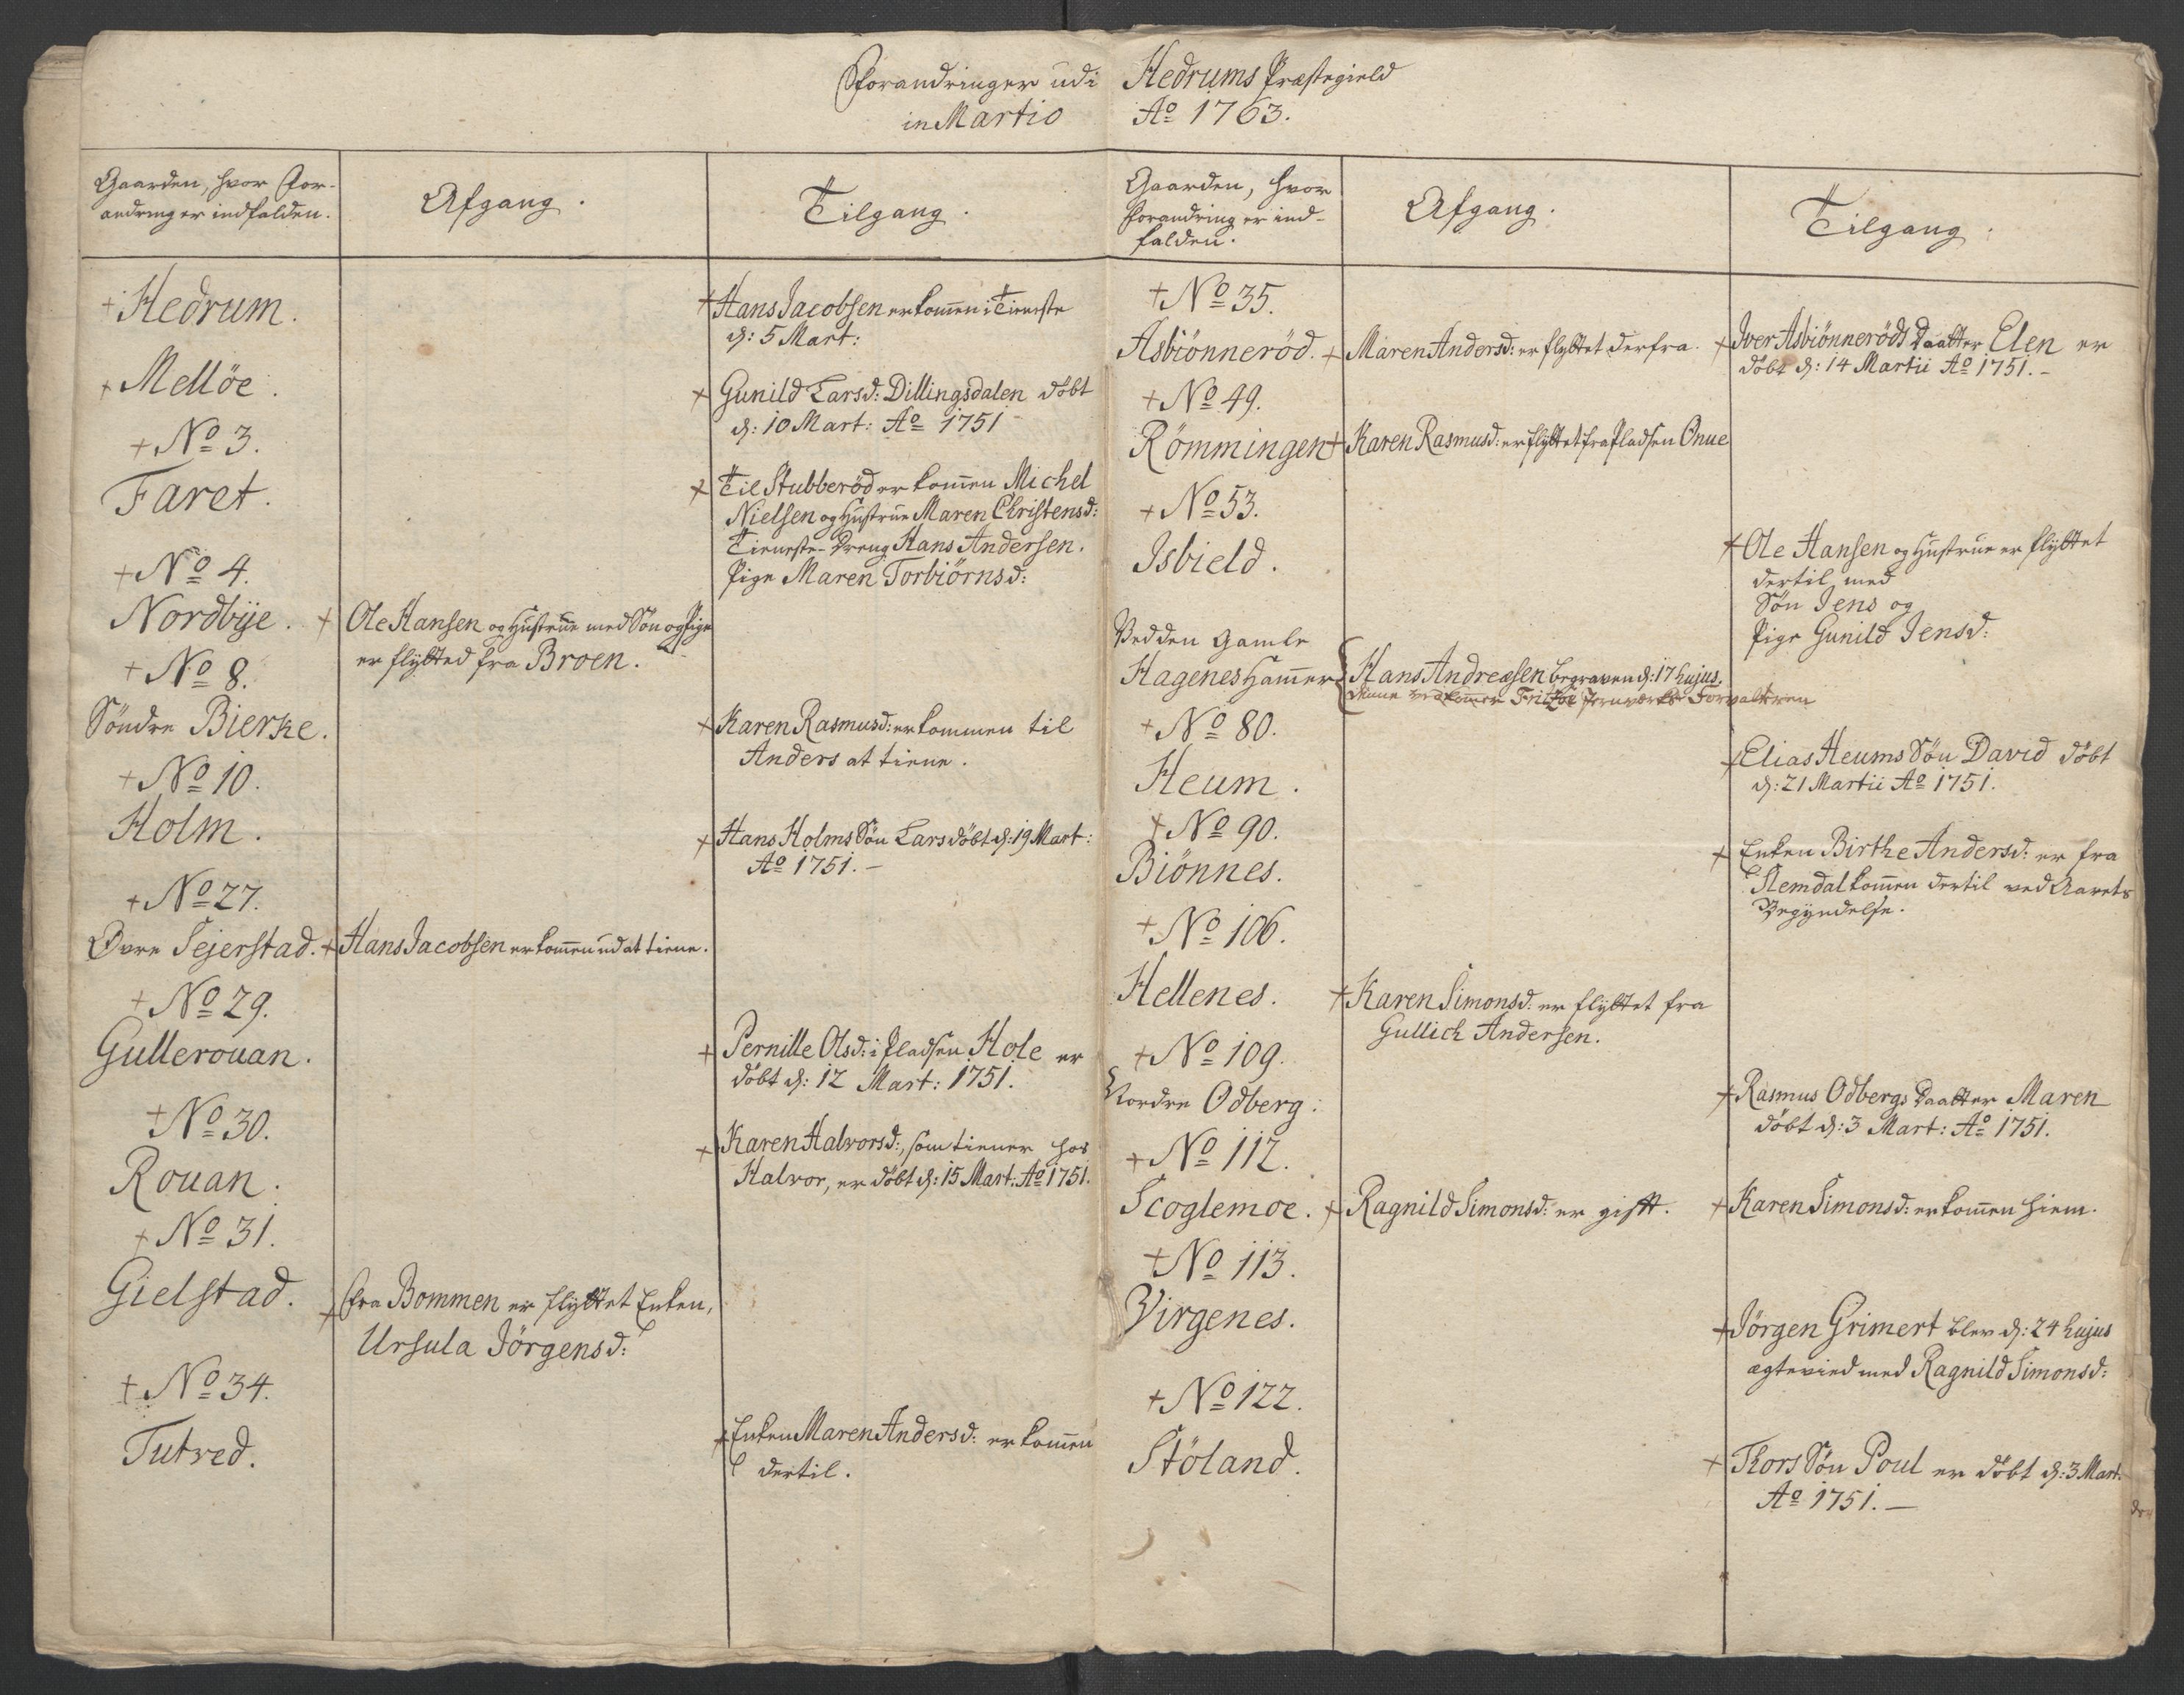 Forandringer udi Hedrums Præstegield
in Martio Ao 1763.
Gaarden, hvor For-
andring er indfalden.
Afgang.
Tilgang.
+ Hedrum.
+ Hans Jacobsen er kom̄en i Tieneste
d: 5 Mart:
+ Mellöe.
+ Gunild Larsd: Dillingsdalen döbt
d: 10 Mart: Ao 1751
+ No 3.
Faret.
+ Til Stubberöd er kom̄en Michel
Nielsen og Hustrue Maren Christensd:
Tieneste-Dreng Hans Andersen.
Pige Maren Torbiörnsd:
+ No 4.
Nordbÿe.
+ Ole Hansen og Hustrue med Sön og Pige
er flÿtted fra Broen.
+ No 8.
Söndre Bierke.
+ Karen Rasmusd: er kommen til
Anders at tiene.
+ No 10.
Holm.
+ Hans Holms Sön Lars döbt d: 19 Mart:
Ao 1751. –
+ No 27.
Øvre Sejerstad.
+ Hans Jacobsen er kom̄en ud at tiene.
+ No 29.
Gullerouan.
+ Pernille Olsd: i Pladsen Hole er
döbt d: 12 Mart: 1751.
+ No 30.
Rouan.
+ Karen Halvorsd:, som tiener hos
Halvor, er döbt d: 15 Mart: Ao 1751.
+ No 31.
Gielstad.
+ Fra Bommen er flÿttet Enken,
Ursula Jörgensd:
+ No 34.
Tutved.
+ Enken Maren Andersd: er kom̄en
dertil.
Gaarden, hvor
Forandring er ind-
falden.
Afgang.
Tilgang.
+ No 35.
Asbiönneröd.
+ Maren Andersd: er flÿttet derfra.
+ Iver Asbiönneröds Daatter Elen er
döbt d: 14 Martii Ao 1751. –
+ No 49.
Römmingen
+ Karen Rasmusd: er flÿttet fra Pladsen Onue
+ No 53.
Isbield.
+ Ole Hansen og Hustrue er flÿttet
dertil med
Sön Jens og
Pige Gunild Jensd:
Ved den Gamle
Hagenes Ham̄er
Hans Andreasen begraven d: 17 hujus.
Denne vedkom̄er Fritzöe Jernværks Forvalteren
+ No 80.
Heum.
+ Elias Heums Sön David döbt
d: 21 Martii Ao 1751.
+ No 90.
Biönnes.
+ Enken Birthe Andersd: er fra
Slemdal kom̄en dertil ved Aarets
Begÿndelse.
+ No 106.
Hellenes.
+ Karen Simonsd: er flÿttet fra
Gullich Andersen.
+ No 109.
Nordre Odberg:
+ Rasmus Odbergs Daatter Maren
döbt d: 3 Mart: Ao 1751.
+ No 112.
Scoglemoe.
+ Ragnild Simonsd: er gift.
+ Karen Simonsd: er kom̄en hiem.
+ No 113.
Virgenes.
+ Jörgen Grimert blev d: 24 hujus
ægtevied med Ragnild Simonsd:
+ No 122.
Stöland.
+ Thors Sön Poul er döbt d: 3 Mart.
Ao 1751. –